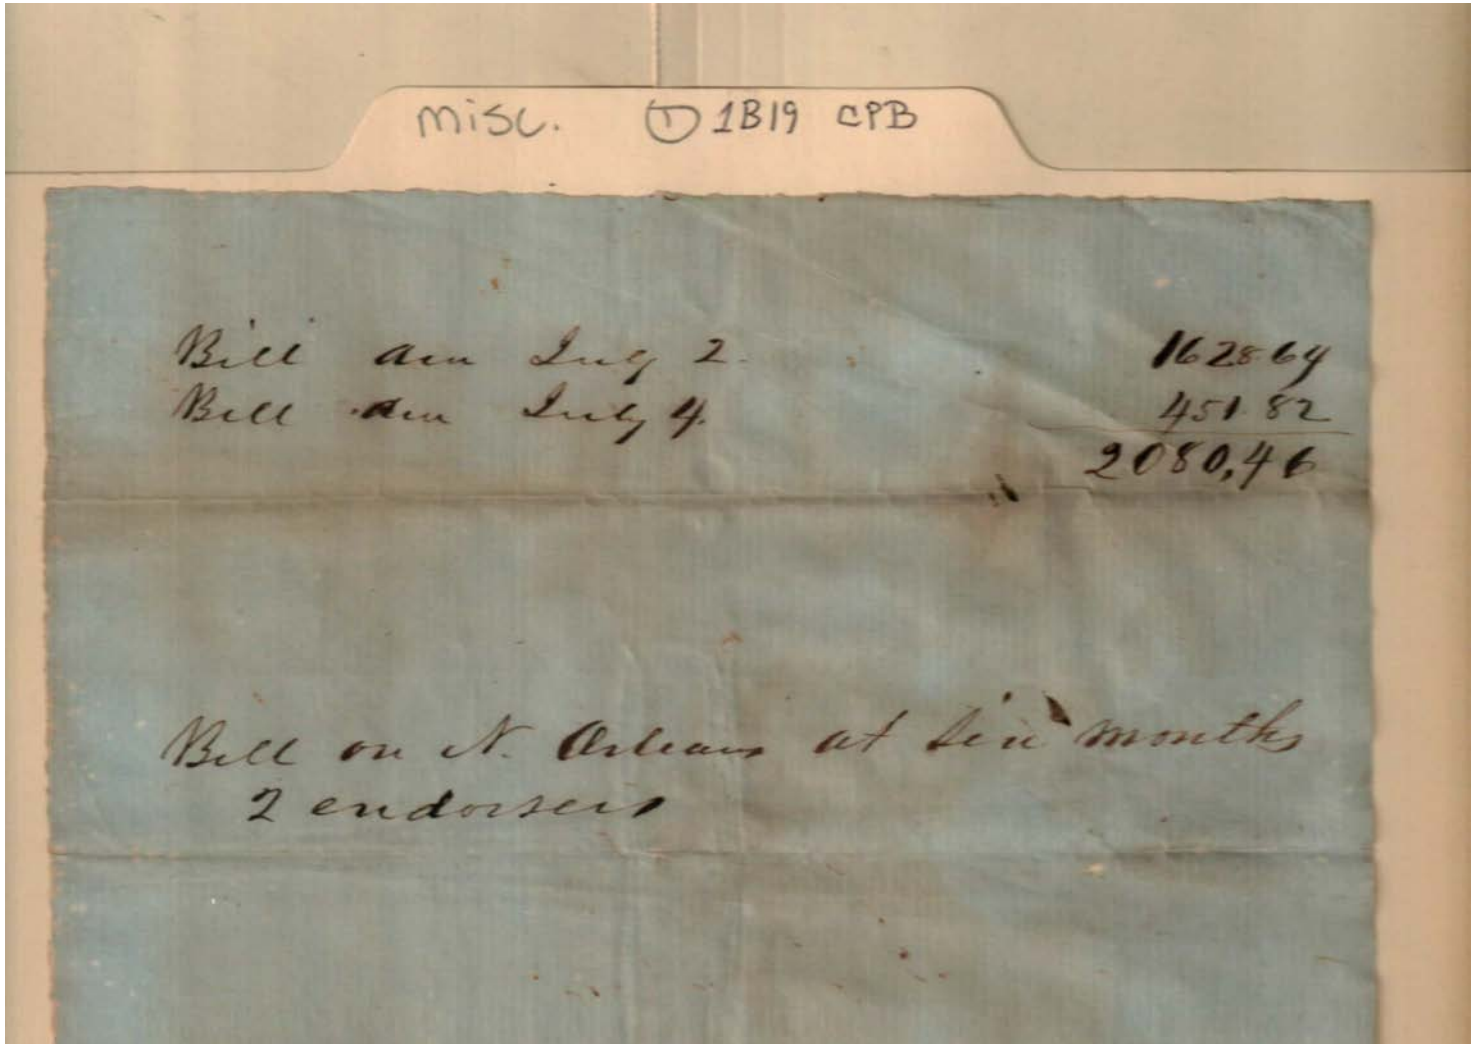 misc. ① 1B19 CPB
Bill am July 2. 1628 64
Bill am July 4. 451.82
2080,46
Bill on N. Orleans at six months
2 endorsers